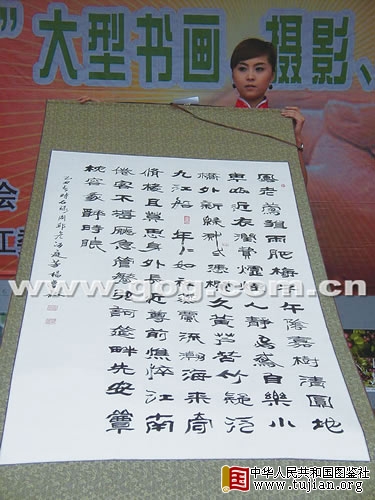 ”大型书画、摄影、
会
江
風老鶯雛雨肥梅子午陰嘉樹清圓地
卑山近衣潤費爐煙人靜烏鳶自樂小
橋外新綠濺濺憑欄久黃蘆苦竹疑泛
九江船年年如社燕飄流瀚海來寄
脩椽且莫思身外長近尊前憔悴江南
倦客不堪聽急管繁弦歌筵畔先安簟
枕容我醉時眠
www.gog.com.cn
中华人民共和国图鉴社
www.tujian.org